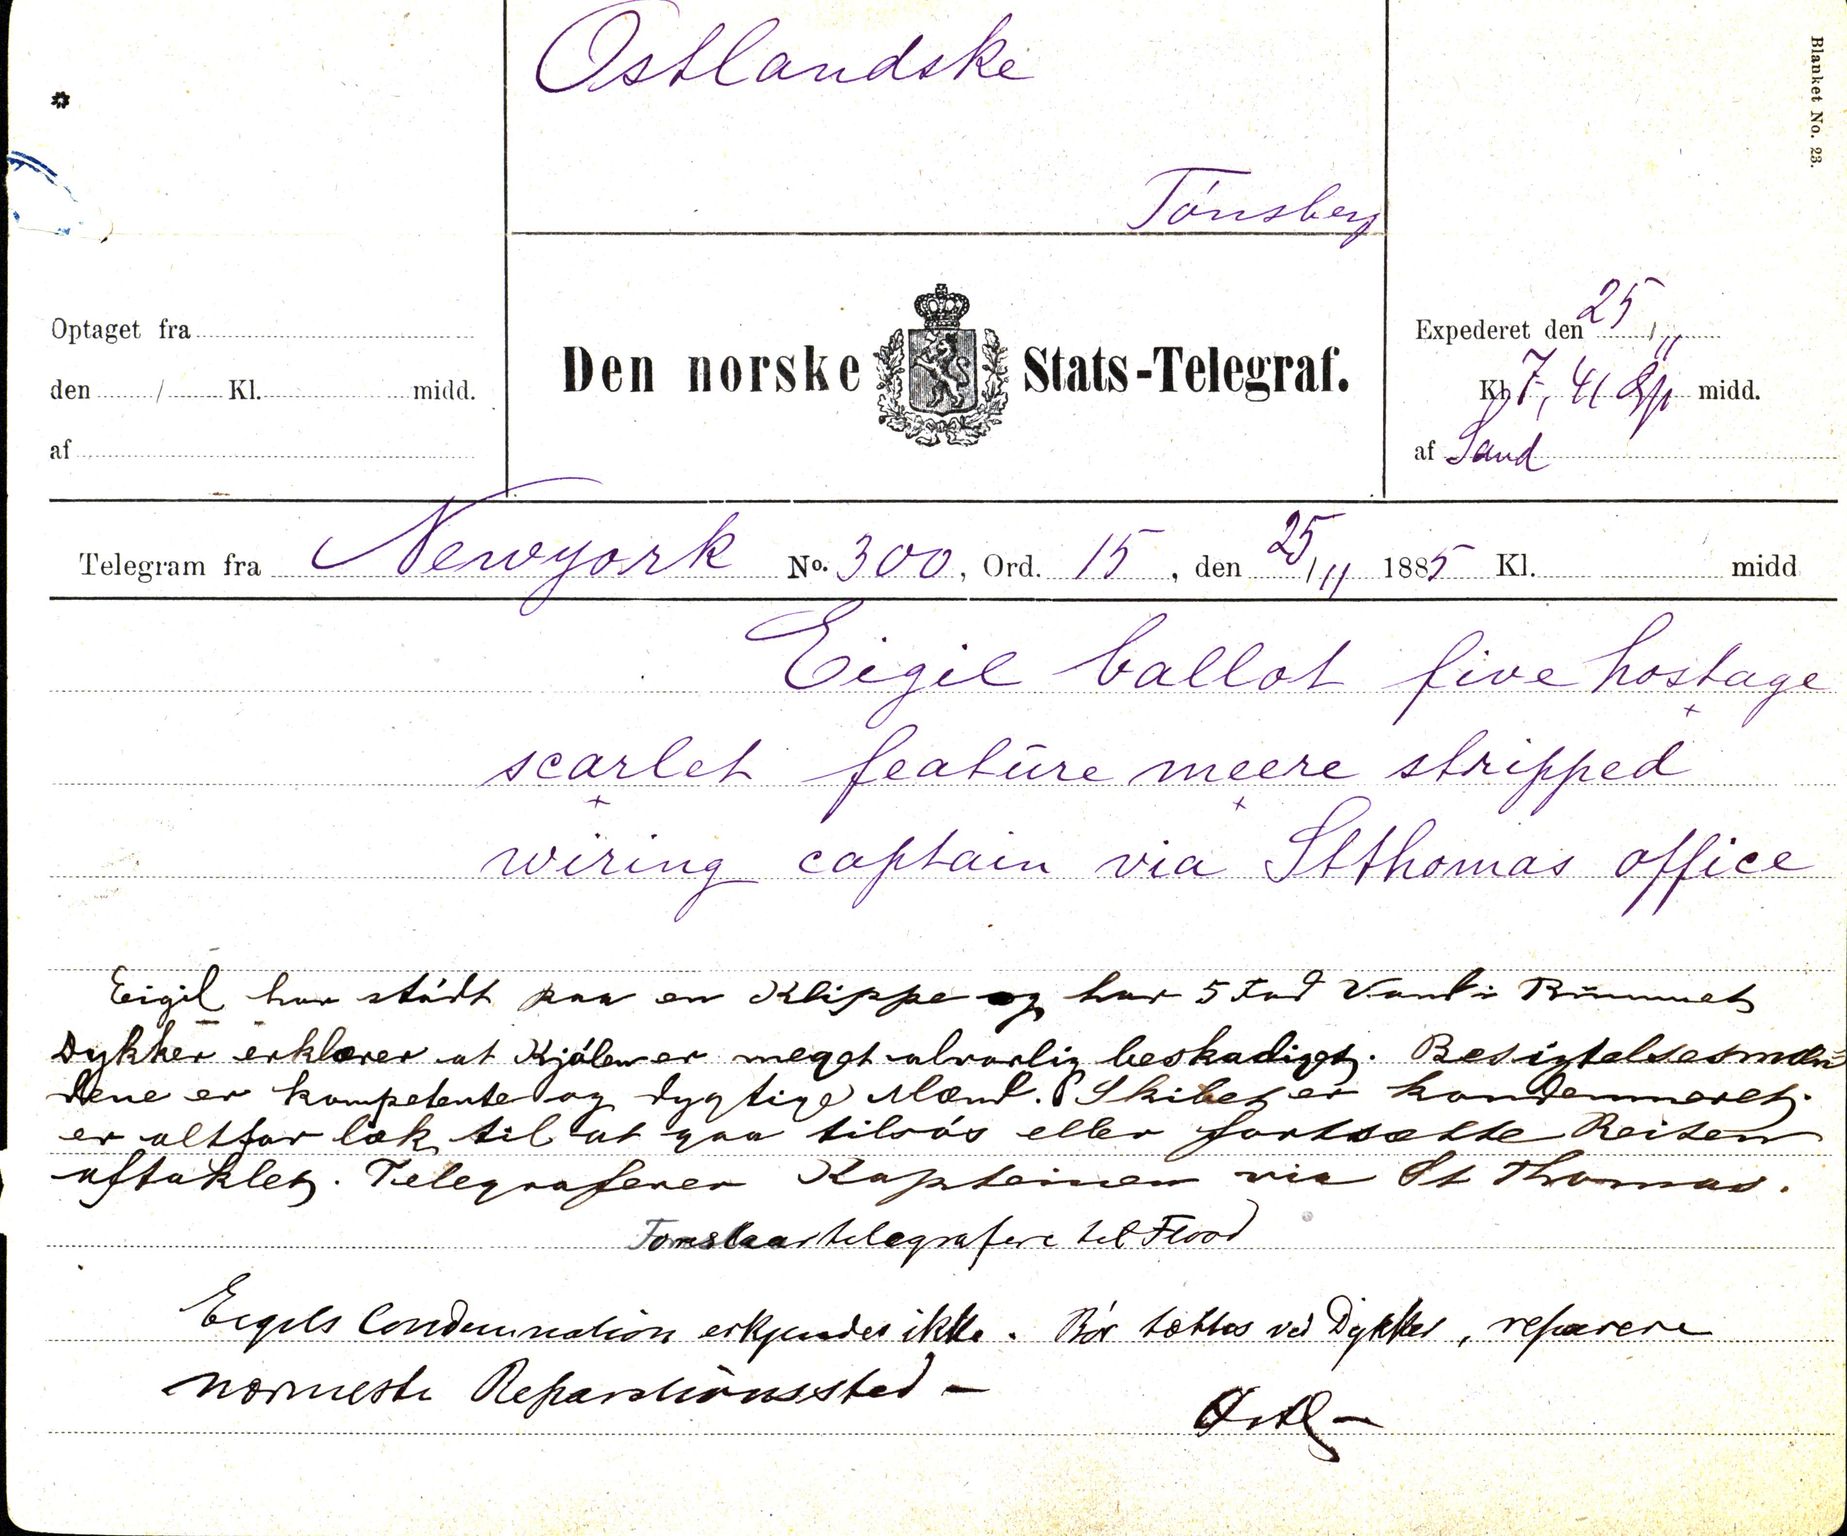 Ostlandske
Blanket No. 23.
Tónsberg
Optaget fra
den / Kl. midd.
af
Den norske Stats-Telegraf.
Expederet den 25/11
Kl. 7,41 midd.
af Sand
Telegram fra Newyork No. 300, Ord. 15, den 25/11 1885 Kl. midd
Eigil ballot five hostage
scarlet feature meere stripped
wiring captain via Stthomas office
Eigil har stódt paa en Klippe og har 5 Fod Vand i Rummet
Dykker erklærer at Kjólen er meget alvorlig beskadiget. Besigtelsesmæn-
dene er kompetente og dygtige Mænd. Skibet er kondemneret.
er altfor læk til at gaa tilsós eller fortsætte Reisen
aftaklet. Telegraferer Kapteinen via St Thomas.
telegrafere til Flood
Eigils Condemnation erkjendes ikke. Bór tættes ved Dykker, reparere
nærmeste Reparationssted —